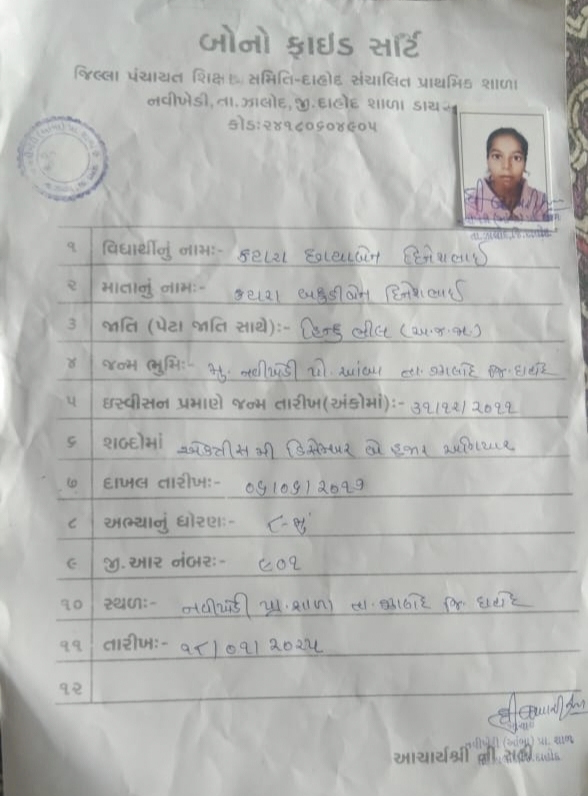 બોનો ફાઇડ સર્ટિ
જિલ્લા પંચાયત શિક્ષણ સમિતિ-દાહોદ સંચાલિત પ્રાથમિક શાળા
નવીખેડી,તા.ઝાલોદ,જી.દાહોદ શાળા ડાયસ
કોડ:૨૪૧૮૦૬૦૪૯૦૫
૧ વિદ્યાર્થીનું નામ:- કટારા છાયાબેન દિનેશભાઈ
૨ માતાનું નામ:- કટારા બકુડીબેન દિનેશભાઈ
૩ જાતિ (પેટા જાતિ સાથે):- હિન્દુ ભીલ (અ.જ.જા)
૪ જન્મ ભુમિ:- મુ. નવીખેડી પો. આંબા તા. ઝાલોદ જિ. દાહોદ
૫ ઇસ્વીસન પ્રમાણે જન્મ તારીખ(અંકોમાં):- ૩૧/૧૨/૨૦૧૧
૬ શબ્દોમાં એકત્રીસ મી ડિસેમ્બર બે હજાર અગિયાર
૭ દાખલ તારીખ:- ૦૬/૦૬/૨૦૧૭
૮ અભ્યાનું ધોરણ:- ૮-મું
૯ જી.આર નંબર:- ૯૦૧
૧૦ સ્થળ:- નવીખેડી પ્રા. શાળા તા. ઝાલોદ જિ. દાહોદ
૧૧ તારીખ:- ૧૮/૦૧/૨૦૨૫
૧૨
આચાર્ય
નવીખેડી (આંબા) પ્રા. શાળા
આચાર્યશ્રી ની સહી